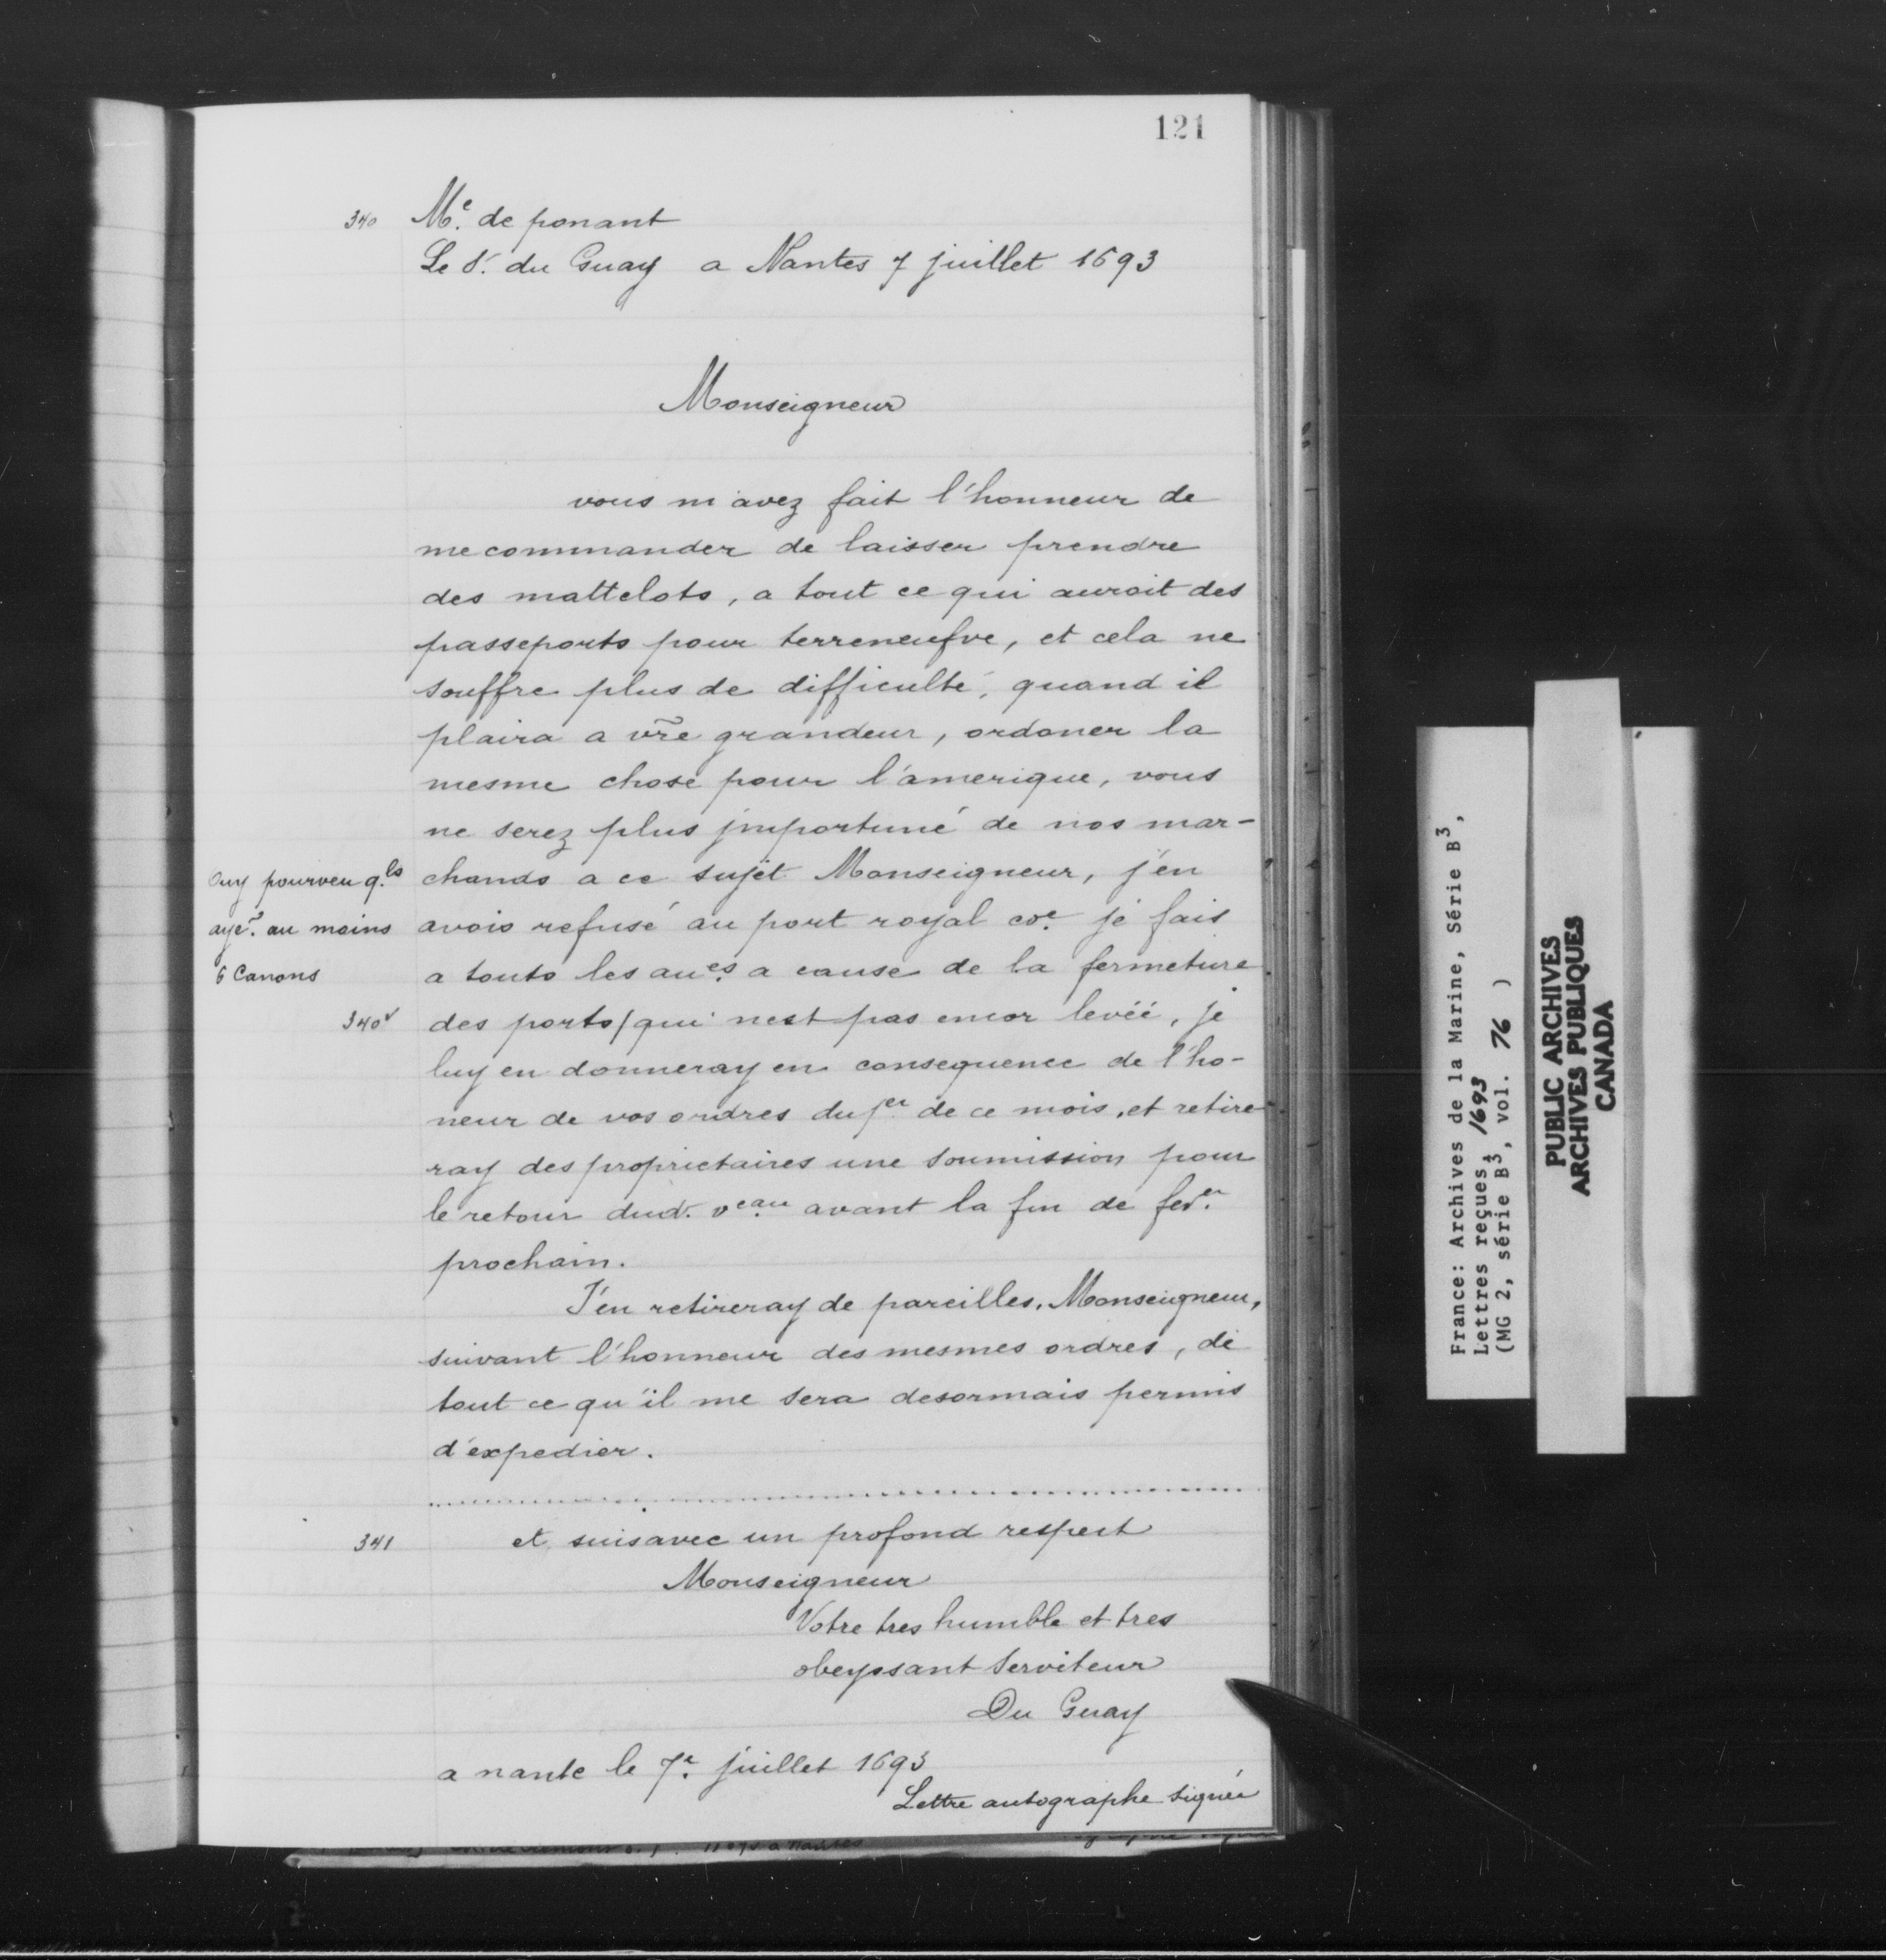 121
340 Mᵉ. de ponant
Le Sʳ. du Guay a Nantes 7 juillet 1693
Monseigneur
vous m'avez fait l'honneur de
me commander de laisser prendre
des mattelots, a tout ce qui auroit des
passeports pour terreneufve, et cela ne
souffre plus de difficulté, quand il
plaira a vr̃e grandeur, ordoner la
mesme chose pour l'amerique, vous
ne serez plus jmportuné de nos mar-
chands a ce sujet Monseigneur, j'en
avois refusé au port royal coᵉ. je fais
a touts les auᵉˢ. a cause de la fermeture
Ouy pourveu q.ˡˢ
ayẽ. au moins
6 Canons
340ᵛ des ports/qui n'est pas encor levéé, je
luy en donneray en consequence de l'ho-
neur de vos ordres du 1ᵉʳ de ce mois, et retire-
ray des proprietaires une soumission pour
le retour dud. vᵉᵃᵘ avant la fin de fevᵉʳ.
prochain.
J'en retireray de pareilles, Monseigneur,
suivant l'honneur des mesmes ordres, de
tout ce qu'il me sera desormais permis
d'expedier.
341 et suis avec un profond respect
Monseigneur
Votre tres humble et tres
obeyssant serviteur
Du Guay
a nante le 7ᵉ. juillet 1693
Lettre autographe signée
France: Archives de la Marine, Série B³,
Lettres reçues, 1693
(MG 2, série B³, vol. 76 )
PUBLIC ARCHIVES
ARCHIVES PUBLIQUES
CANADA